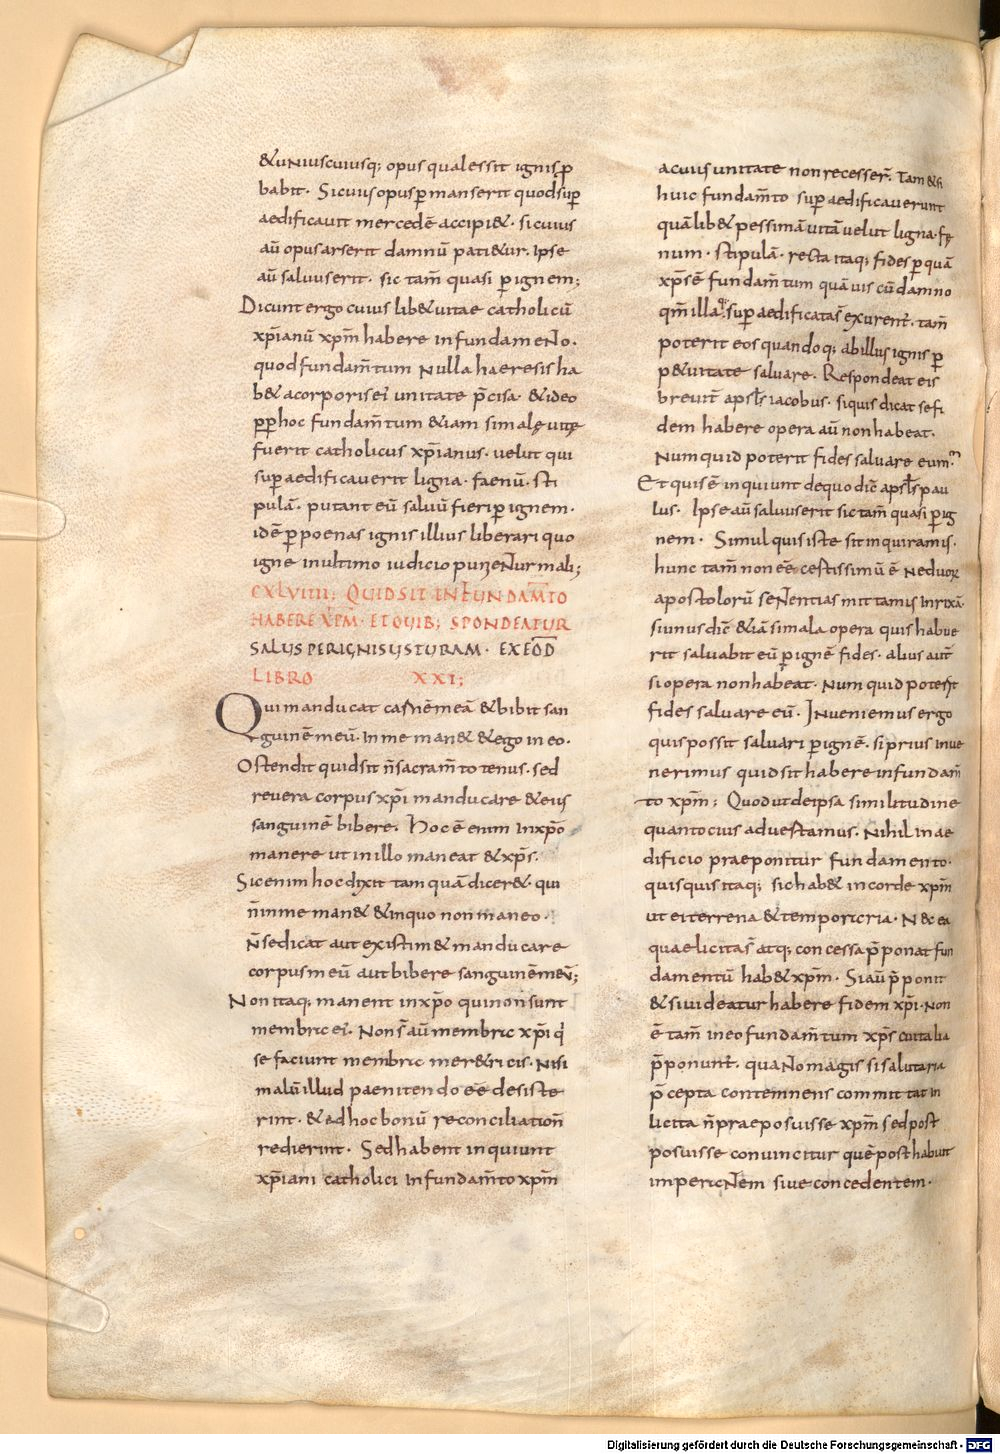 &uniuscuiusq; opus quale ssit ignis ꝓ
babit· Sicuius opus ꝑmanserit quod suꝑ
aedificauit mercedē accipi&· sicuius
aū opus arserit damnū pati&ur· Ipse
aū saluus erit· sic tam̄ quasi ꝑ ignem;
Dicunt ergo cuius lib& uitae catholicū
xp̄ianū xp̄m habere in fundamento·
quod fundam̄tum nulla haeresis ha
b& a corporis ei unitate p̄cisa· & ideo
ꝓꝑ hoc fundam̄tum &iam si malę uitę
fuerit catholicus xp̄ianus· uelut qui
suꝑ aedificauerit ligna· faenū· sti
pulā· putant eū saluū fieri ꝑ ignem·
idē ꝑ poenas ignis illius liberari quo
igne in ultimo iudicio punientur mali;
CXLVIIII; QUID SIT IN FUNDAM̄TO
HABERE XP̄M· ET QUIB; SPONDEATUR
SALUS PER IGNIS USTURAM· EX EOD̄
LIBRO XXI;
Qui manducat carnē meā & bibit san
guinē meū· in me man& & ego in eo·
Ostendit quid sit n̄ sacram̄to tenus· sed
reuera corpus xp̄i manducare & eius
sanguinē bibere· Hoc ē enim in xp̄o
manere ut in illo maneat & xp̄s·
Sic enim hoc dixit tamquā dicer&· qui
n̄ in me man& & in quo non maneo·
n̄ se dicat aut existim& manducare
corpus meū aut bibere sanguinē meū;
Non itaq; manent in xp̄o qui non sunt
membra ei· Non s̄ aū membra xp̄i q
se faciunt membra mer&ricis· nisi
malū illud paenitendo eē desiste
rint· & ad hoc bonū reconciliation̄
redierint· Sed habent inquiunt
xp̄iani catholici in fundam̄to xp̄m
a cuius unitate non recesser̄· tam & si
huic fundam̄to suꝑ aedificauerunt
quālib& pessimā uitā uelut ligna· fę
num· stipulā· recta itaq; fides ꝑ quā
xp̄s ē fundam̄tum quāuis cū damno
qm̄ illa suꝑ aedificata s̄ exurent· tam̄
poterit eos quandoq; ab illius ignis ꝑ
p&uitate saluare· Respondeat eis
breuit̄ aposl̄s iacobus· si quis dicat se fi
dem habere opera aū non habeat·
Numquid poterit fides saluare eum·
Et quis ē inquiunt de quo dic̄ aposl̄s pau
lus· Ipse aū saluus erit sic tam̄ quasi ꝑ ig
nem· Simul quis iste sit inquiramus·
hunc tam̄ non eē certissimū ē ne duorū
apostolorū sententias mittamus in rixā·
si unus dic̄ &iā si mala opera quis habue
rit saluabit eū ꝑ ignē fides· alius aut̄
si opera non habeat· Numquid poterit
fides saluare eū· Inueniemus ergo
quis possit saluari ꝑ ignē· si prius inue
nerimus quid sit habere in fundam̄
to xp̄m; Quod ut de ipsa similitudine
quantocius aduertamus· Nihil in ae
dificio praeponitur fundamento·
quisquis itaq; sic hab& in corde xp̄m
ut ei terrena & temporaria· nec ea
quae licita s̄ atq; concessa p̄ponat fun
damentū hab& xp̄m· Si aū p̄ponit
& si uideatur habere fidem xp̄i· non
ē tam̄ in eo fundam̄tum xp̄s cui talia
p̄ponunt̄· quanto magis si salutaria
p̄cepta contemnens committat in
licita n̄ praeposuisse xp̄m sed post
posuisse conuincitur quē post habuit
imperantem siue concedentem·
Digitalisierung gefördert durch die Deutsche Forschungsgemeinschaft - DFG